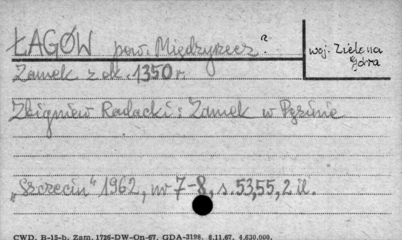 ŁAGÓW pow. Międzyrzecz?
woj. Zielona
Góra
Zamek z ok. 1350 r.
Zbigniew Radacki: Zamek w Pyrzuie
„Szczecin" 1962, nr 7-8, s. 53,55, 2 il.
CWD. B-15-b. Zam. 1726-DW-On-67. GDA-3198. 8.11.67. 4.630.000.